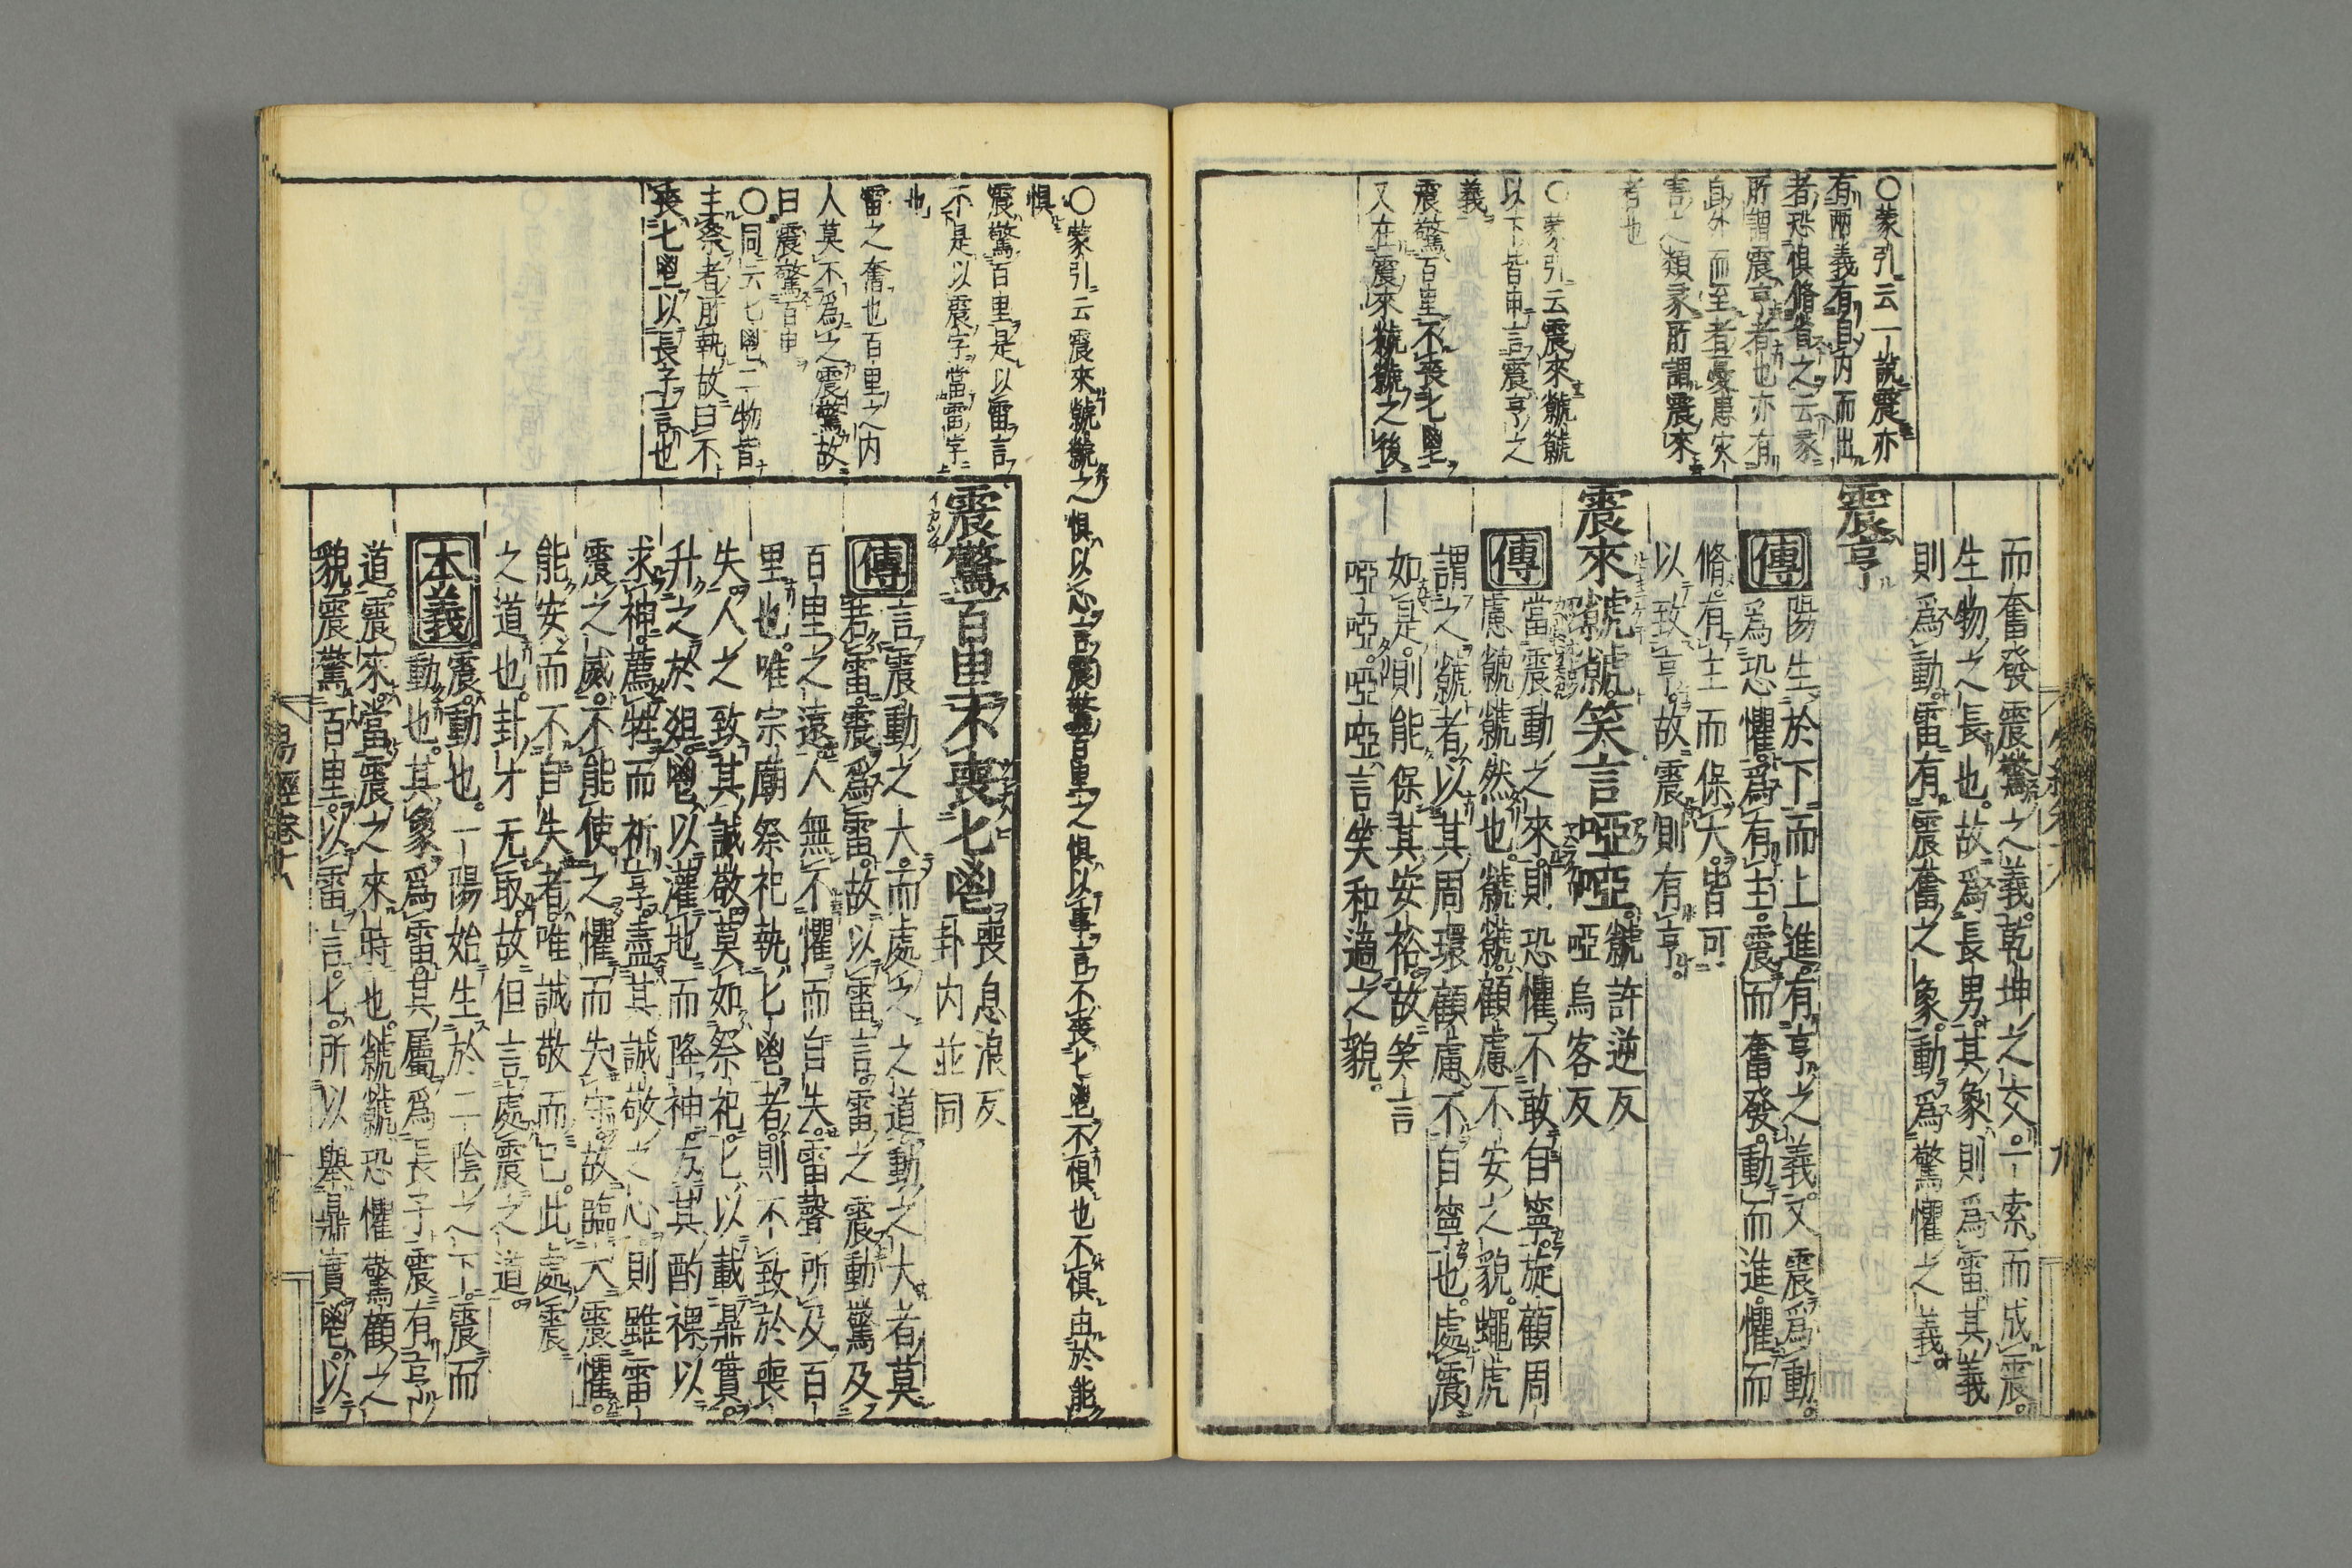 ○蒙引云一說震亦
有兩義有自内而出
者恐惧脩省之云彖
所謂震亨者也亦有
自外而至者憂患灾
害之類彖所謂震來
者也
○蒙引云震來虩虩
以下皆申言震亨之
義
震驚百里不喪匕鬯
又在震來虩虩之後
而奮發震驚之義乾坤之交一索而成震
生物之長也故爲長男其象則爲雷其義
則爲動雷有震奮之象動爲驚懼之義
震亨
傳陽生於下而上進有亨之義又震爲動
爲恐懼爲有主震而奮發動而進懼而
脩有主而保大皆可
以致亨故震則有亨
震來虩虩笑言啞啞虩許逆反
啞烏客反
傳當震動之來則恐懼不敢自寧旋顧周
慮虩虩然也虩虩顧慮不安之貌蠅虎
謂之虩者以其周環顧慮不自寧也處震
如是則能保其安裕故笑言
啞啞啞啞言笑和適之貌
○蒙引云震來虩虩之惧以心言震驚百里之惧以事言不喪匕鬯不惧也不惧由於能
惧
震驚百里是以雷言
不是以震字當雷字
也
雷之奮也百里之内
人莫不爲之震驚故
曰震驚百里
○同云匕鬯二物皆
主祭者所執故曰不
喪匕鬯以長子言也
震驚百里不喪匕鬯喪息浪反
卦内並同
傳言震動之大而處之之道動之大者莫
若雷震爲雷故以雷言雷之震動驚及
百里之遠人無不懼而自失雷聲所及百
里也唯宗廟祭祀執匕鬯者則不致於喪
失人之致其誠敬莫如祭祀匕以載鼎實
升之於俎鬯以灌地而降神方其酌祼以
求神薦牲而祈享盡其誠敬之心則雖雷
震之威不能使之懼而失守故臨大震懼
能安而不自失者唯誠敬而已此處震
之道也卦才无取故但言處震之道
本義震動也一陽始生於二陰之下震而
動也其象爲雷其屬爲長子震有亨
道震來當震之來時也虩虩恐懼驚顧之
貌震驚百里以雷言匕所以舉鼎實鬯以
易經卷六